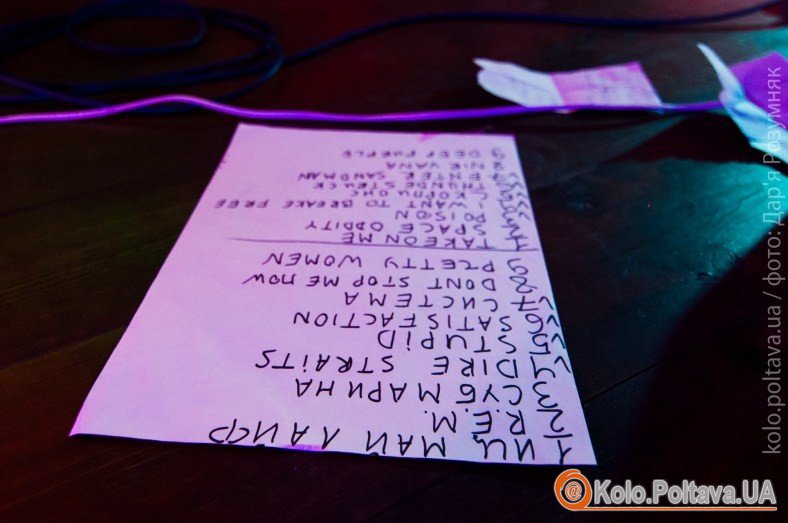 1 ИЦ МАЙ ЛАЙФ
2 R.E.M.
3 СУБМАРИНА
4 DIRE STRAITS
5 STUPID
6 SATISFACTION
7 СИСТЕМА
8 DONT STOP ME NOW
9 PRETTY WOMEN
TAKE ON ME
SPACE ODDITY
POISON
I WANT TO BREAKE FREE
СКОРПИОНС
THUNDESTRUCK
ENTER SANDMAN
NIRVANA
DEEP PURPLE
kolo.poltava.ua / фото: Дар'я Розумняк
Kolo.Poltava.UA